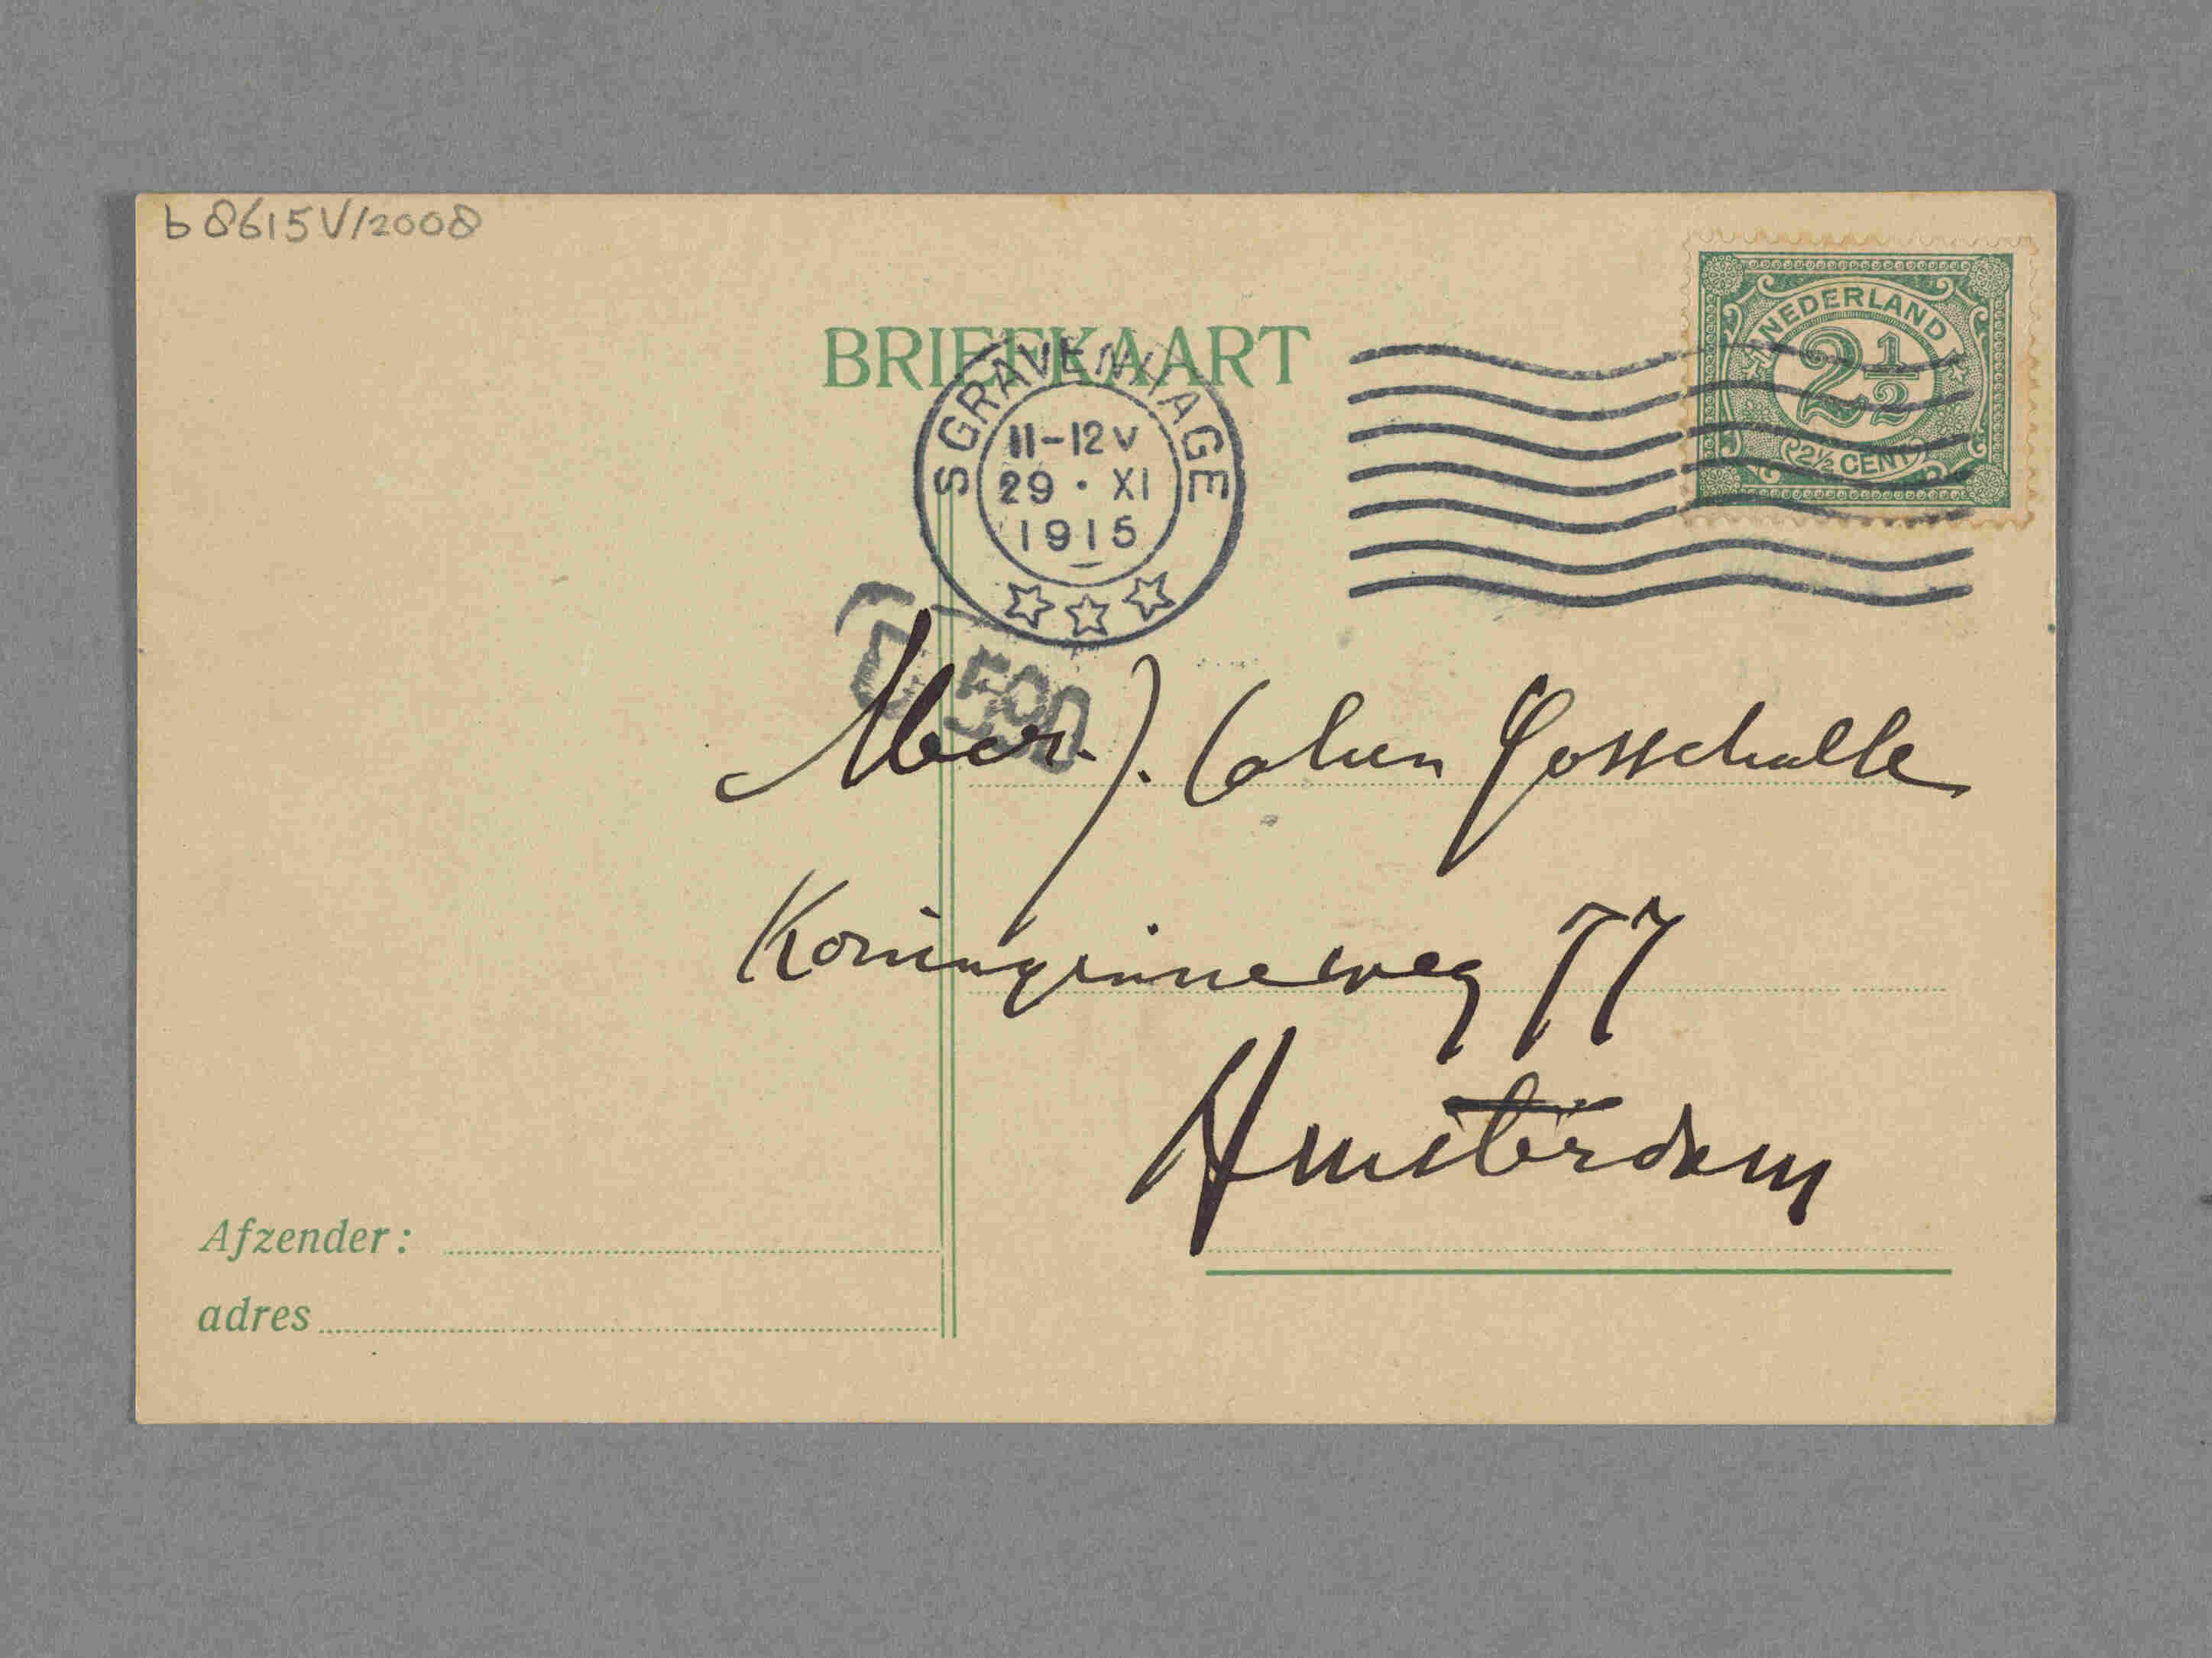 b 8615 V/2008
NEDERLAND
2 1/2
2 1/2 CENT
BRIEFKAART
SGRAVENHAGE
11-12 V
29 · XI
1915
500
Mevr. J. Cohen Gosschalk
Koninginneweg 77
Amsterdam
Afzender:
adres